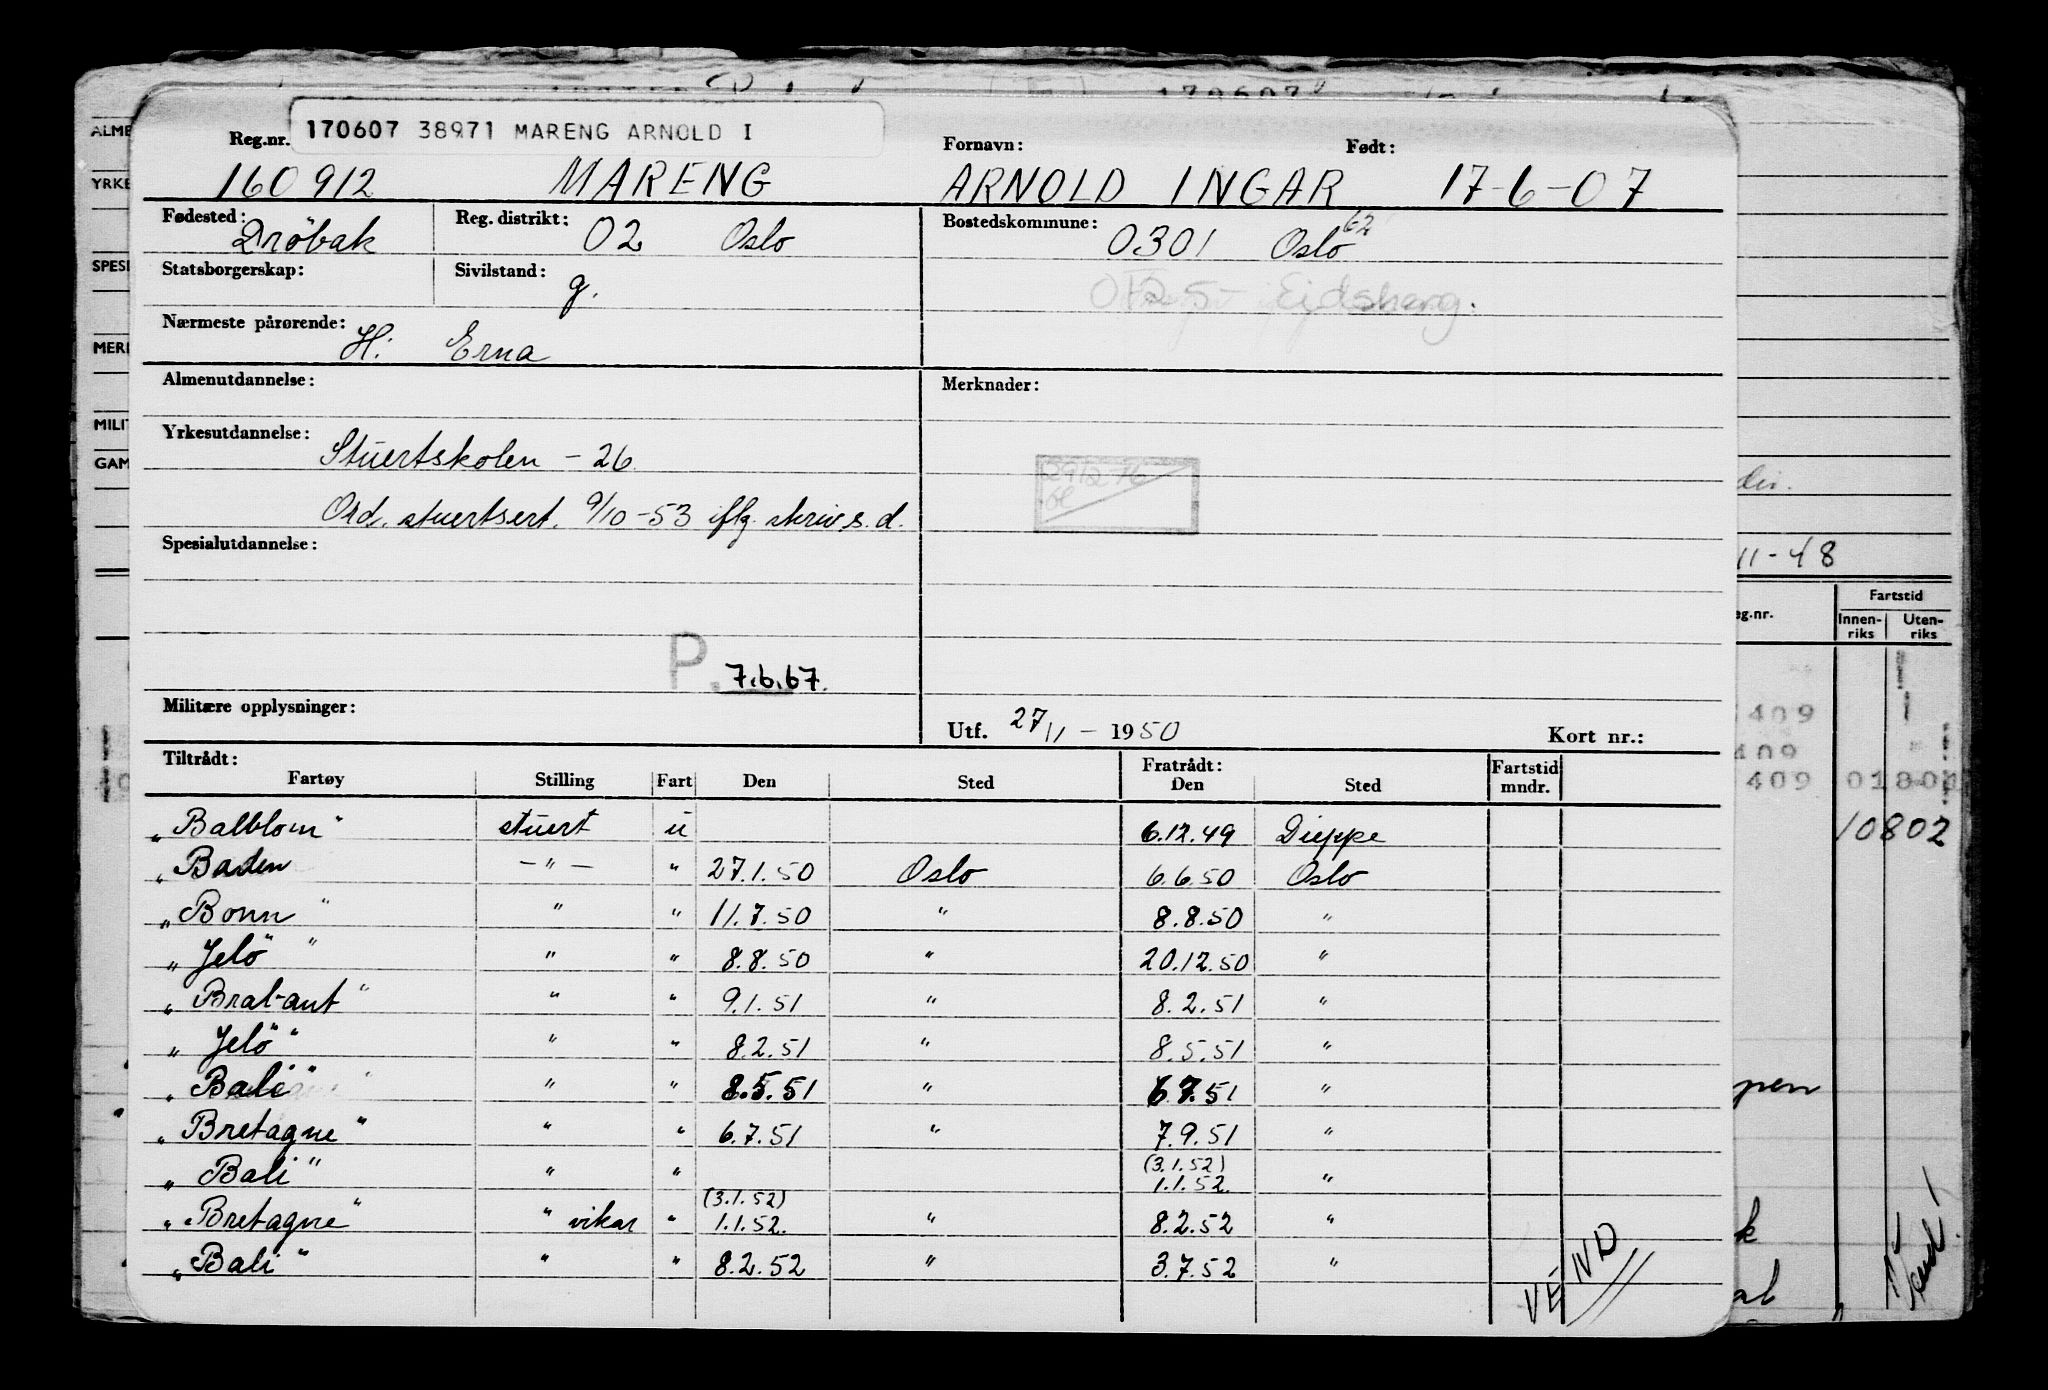 170607 38971 MARENG ARNOLD I
Reg.nr. Fornavn: Født:
160912 MARENG ARNOLD INGAR 17-6-07
Fødested: Dröbak Reg. distrikt: 02 Oslo Bostedskommune: 0301 Oslo 62
Statsborgerskap: Sivilstand: g. Eidsberg.
Nærmeste pårørende: H: Erna
Almenutdannelse: Merknader:
Yrkesutdannelse: Stuertskolen - 26
Ord. stuertsert. 9/10-53 iflg. skriv s. d.
Spesialutdannelse:
P. 7.6.67.
Militære opplysninger: Utf. 27/11 - 1950 Kort nr.:
Tiltrådt: Fratrådt: Fartstid
Fartøy Stilling Fart Den Sted Den Sted mndr.
"Balblom" stuert u 6.12.49 Dieppe
"Baden - " - " 27.1.50 Oslo 6.6.50 Oslo
"Bonn" " " 11.7.50 " 8.8.50 "
"Jelö" " " 8.8.50 " 20.12.50 "
"Brabant" " " 9.1.51 " 8.2.51 "
"Jelö" " " 8.2.51 " 8.5.51 "
"Bali" " " 8.5.51 " 6.7.51 "
"Bretagne" " " 6.7.51 " 7.9.51 "
"Bali" " " (3.1.52) 1.1.52. "
"Bretagne" " vikar " (3.1.52) 1.1.52. " 8.2.52 "
"Bali" " " 8.2.52 " 3.7.52 "
VEND
ALME
YRKE
SPESI
MERK
MILIT
GAM
div.
11-48
eg.nr. Fartstid
Innen-riks Uten-riks
409
409
409 01801
10802
pen
k
al
Vend